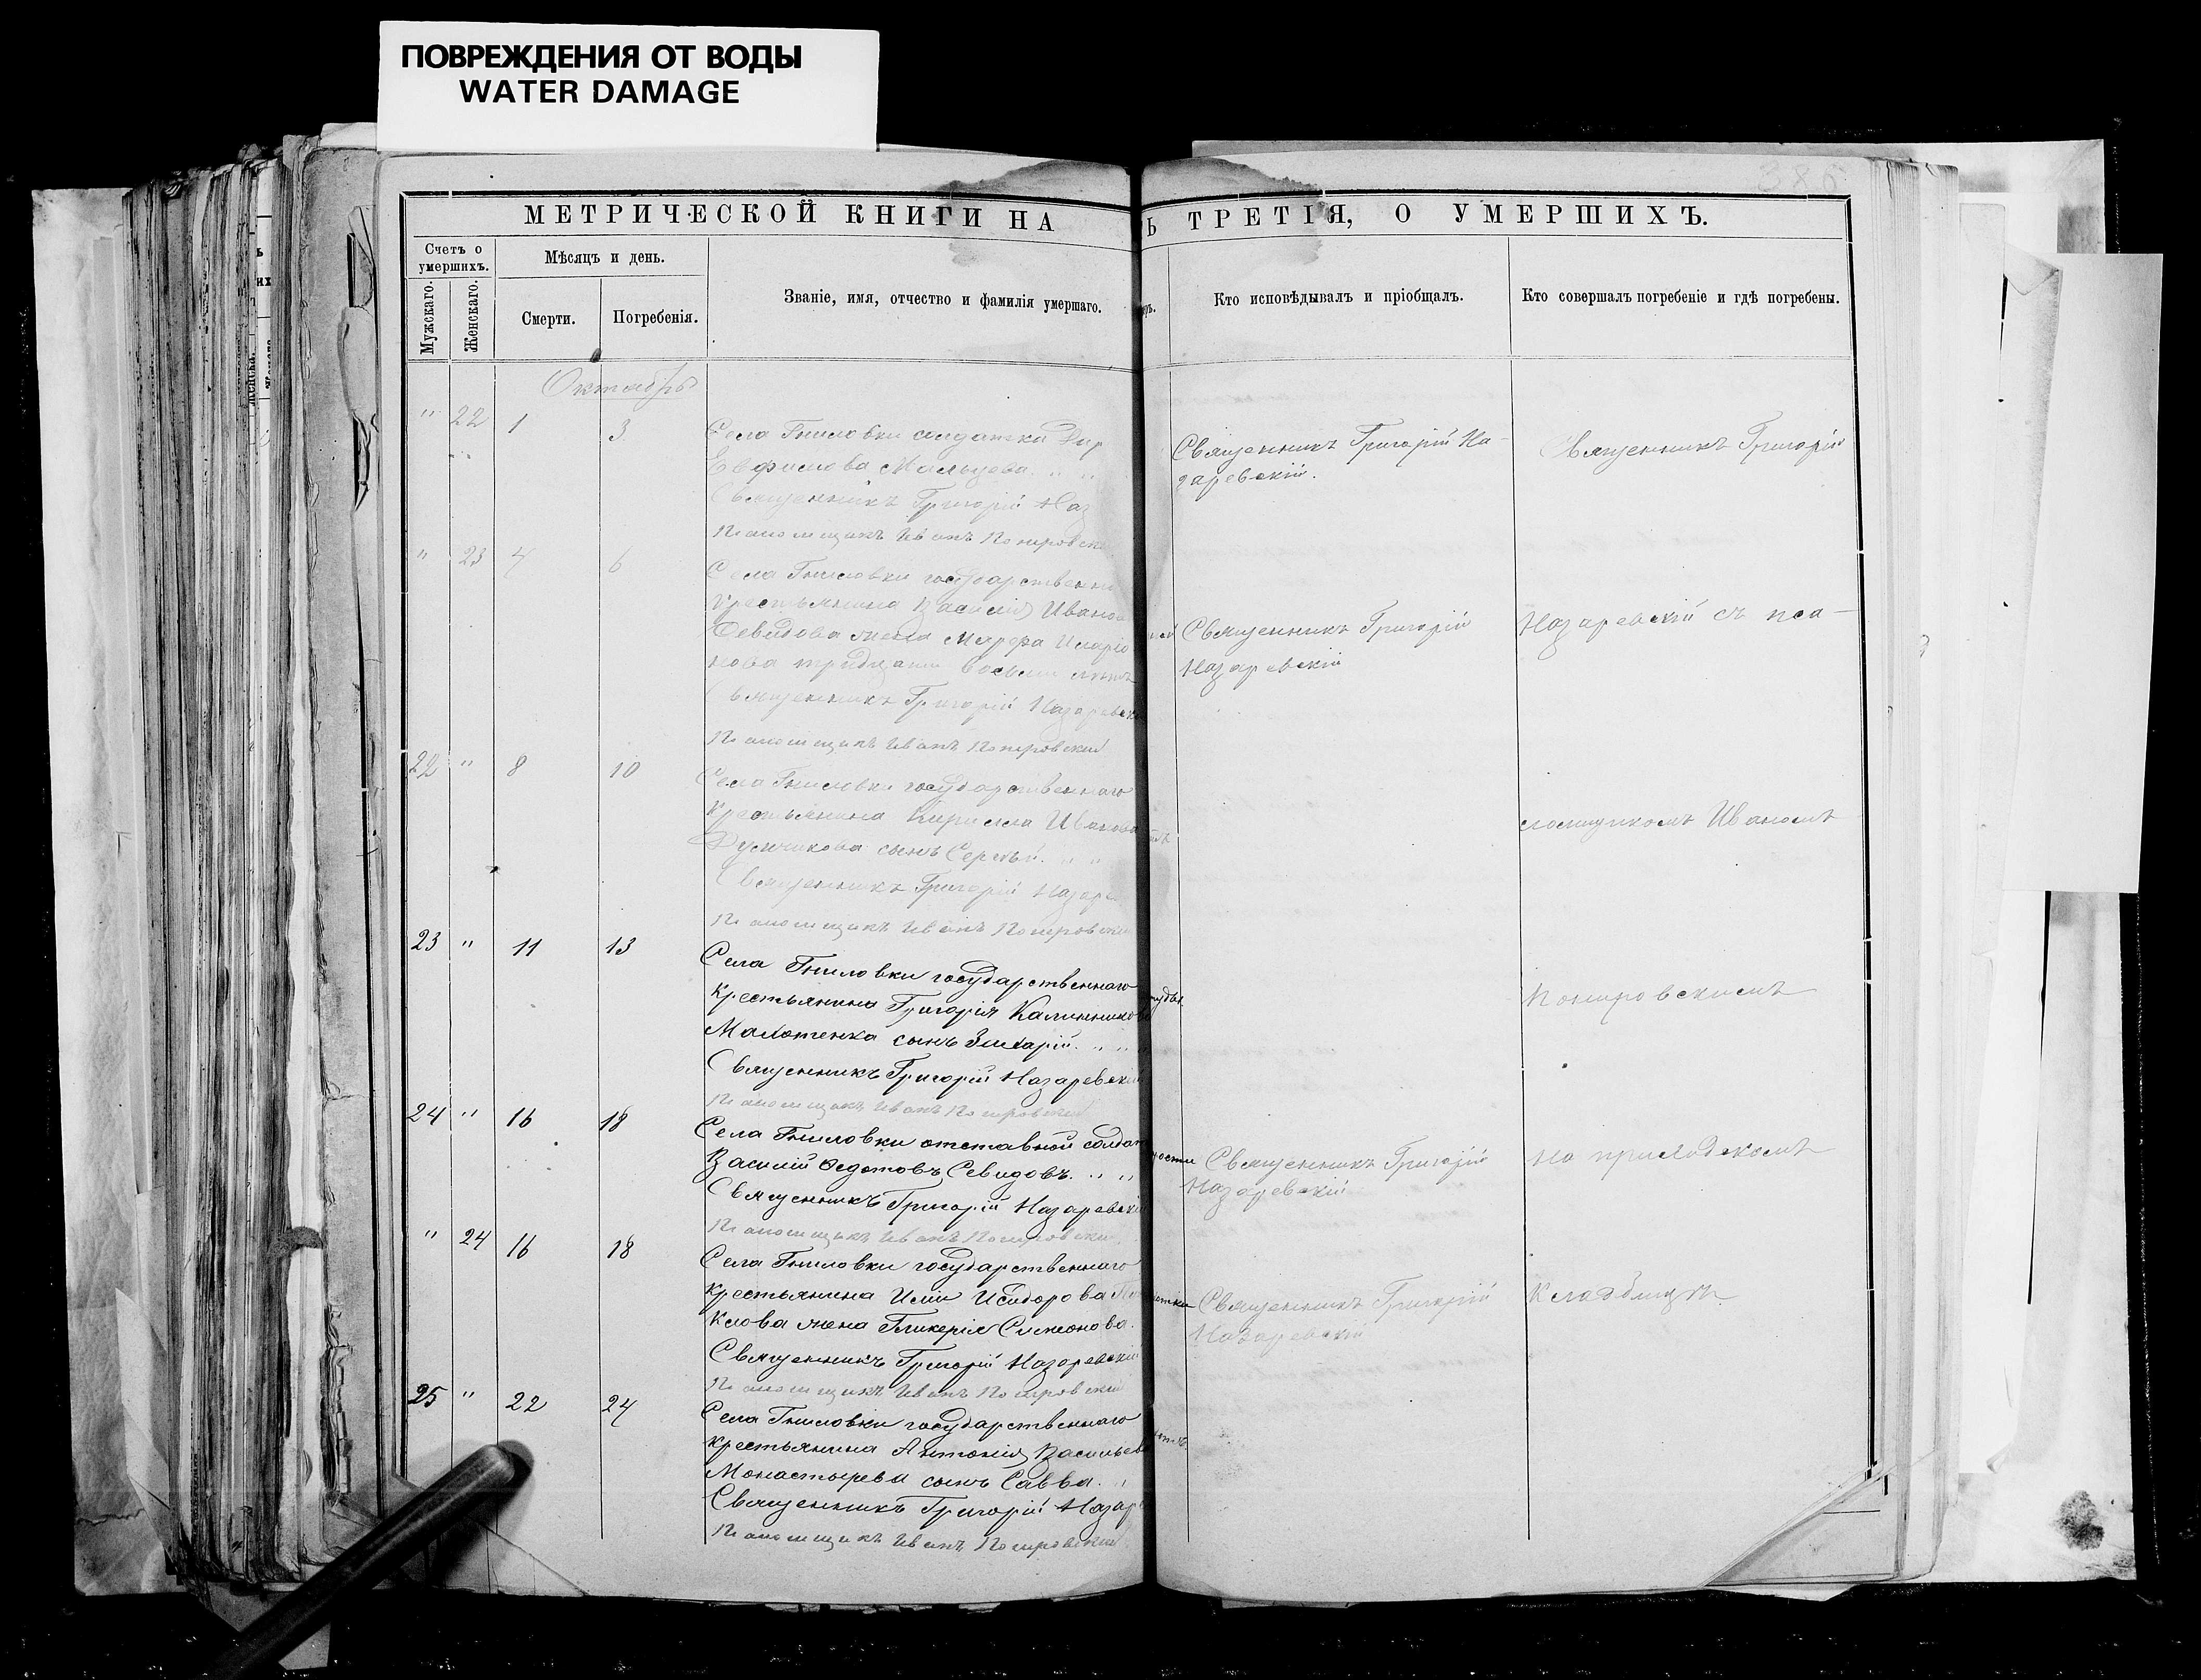 ПОВРЕЖДЕНИЯ ОТ ВОДЫ
WATER DAMAGE
МЕТРИЧЕСКОЙ КНИГИ НА
Ь ТРЕТІЯ, О УМЕРШИХЪ.
Счетъ о умершихъ.
Мужскаго.
Женскаго.
Мѣсяцъ и день.
Смерти.
Погребенія.
Званіе, имя, отчество и фамилія умершаго.
Кто исповѣдывалъ и пріобщалъ.
Кто совершалъ погребеніе и гдѣ погребены.
Октябрь
" 22 1 3
Села Гниловки солдатка
Евфимова Мальцева. " "
Священникъ Григорій Наз
Псаломщикъ Иванъ
" 23 4 6
Села Гниловки государственна
крестьянина Василія Иванов
Севидова жена Марфа Иларіо
нова тридцати восьми лѣтъ
Священникъ Григорій Назаревскі
Псаломщикъ Иванъ
22 " 8 10
Села Гниловки государственнаго
крестьянина Кирилла Иванова
сынъ Сергѣй. " "
Священникъ Григорій Назаре
Псаломщикъ Иванъ
23 " 11 13
Села Гниловки государственнаго
крестьянина Григорія Калинникова
сынъ Захарій. " "
Священникъ Григорій Назаревскій
Псаломщикъ Иванъ
24 " 16 18
Села Гниловки отставной солдат
Василій Ѳедотовъ Севидовъ. " "
Священникъ Григорій Назаревскій
Псаломщикъ Иванъ
" 24 16 18
Села Гниловки государственнаго
крестьянина Иліи Исидорова
кова жена Гликерія Симеонова.
Священникъ Григорій Назаревскій
Псаломщикъ Иванъ
25 " 22 24
Села Гниловки государственнаго
крестьянина Антонія Васильева
Монастырева сынъ Савва. "
Священникъ Григорій Назар
Псаломщикъ Иванъ
Священникъ Григорій На-
заревскій.
Священникъ Григорій
Назаревскій
Священникъ Григорій
Назаревскій
Священникъ Григорій
Назаревскій
Священникъ Григорій
Назаревскій съ пса-
ломщикомъ Иваномъ
на приходскомъ
кладбищѣ.